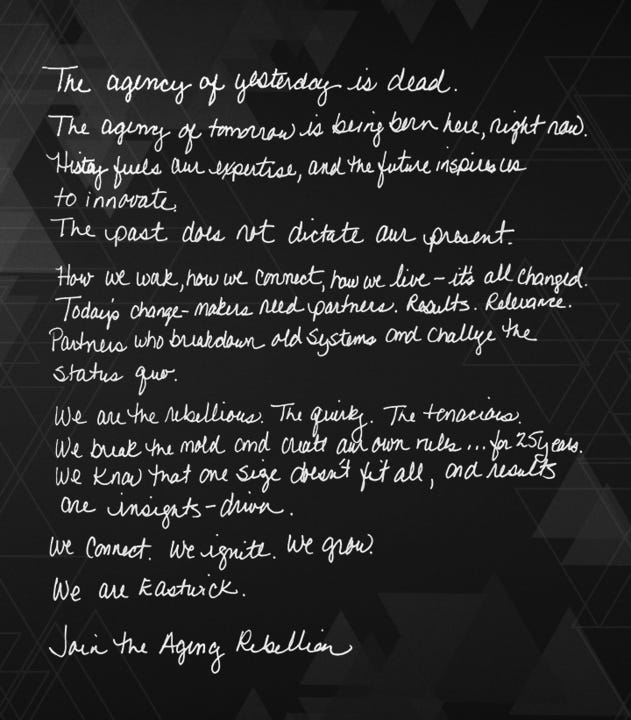 The agency of yesterday is dead.
The agency of tomorrow is being born here, right now.
History fuels our expertise, and the future inspires us
to innovate.
The past does not dictate our present.
How we work, how we connect, how we live - it's all changed.
Today's change-makers need partners. Results. Relevance.
Partners who breakdown old systems and challenge the
status quo.
We are the rebellious. The quirky. The tenacious.
We break the mold and create our own rules... for 25 years.
We know that one size doesn't fit all, and results
are insights-driven.
We connect. We ignite. We grow.
We are Eastwick.
Join the Agency Rebellion